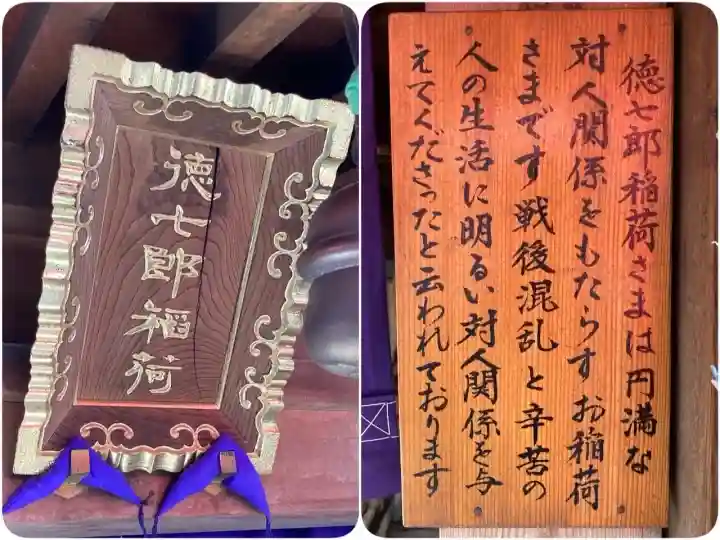 徳七郎稲荷
徳七郎稲荷さまは円満な
対人関係をもたらすお稲荷
さまです戦後混乱と辛苦の
人の生活に明るい対人関係を与
えてくださったと云われております